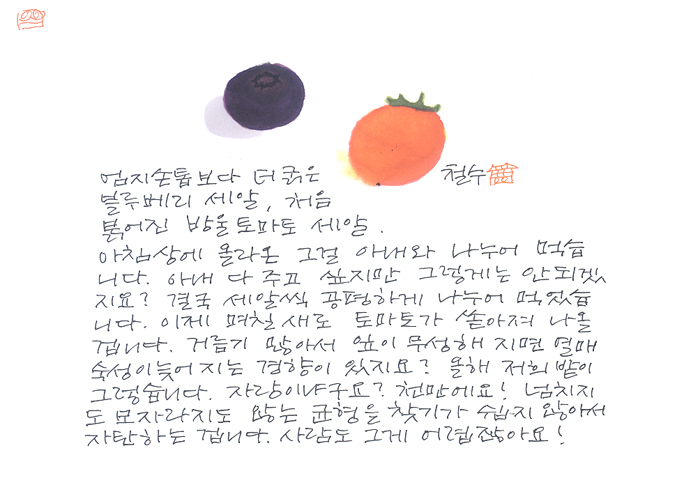 엄지손톱보다 더 굵은
블루베리 세알, 처음
붉어진 방울토마토 세알.
철수
아침상에 올라온 그걸 아내와 나누어 먹습
니다. 아내 다 주고 싶지만 그렇게는 안되겠
지요? 결국 세알씩 공평하게 나누어 먹었습
니다. 이제 며칠새로 토마토가 쏟아져 나올
겁니다. 거름기 많아서 잎이 무성해 지면 열매
숙성이 늦어지는 경향이 있지요? 올해 저희 밭이
그렇습니다. 자랑이냐구요? 천만에요! 넘치지
도 모자라지도 않는 균형을 찾기가 쉽지 않아서
자탄하는 겁니다. 사람도 그게 어렵잖아요!